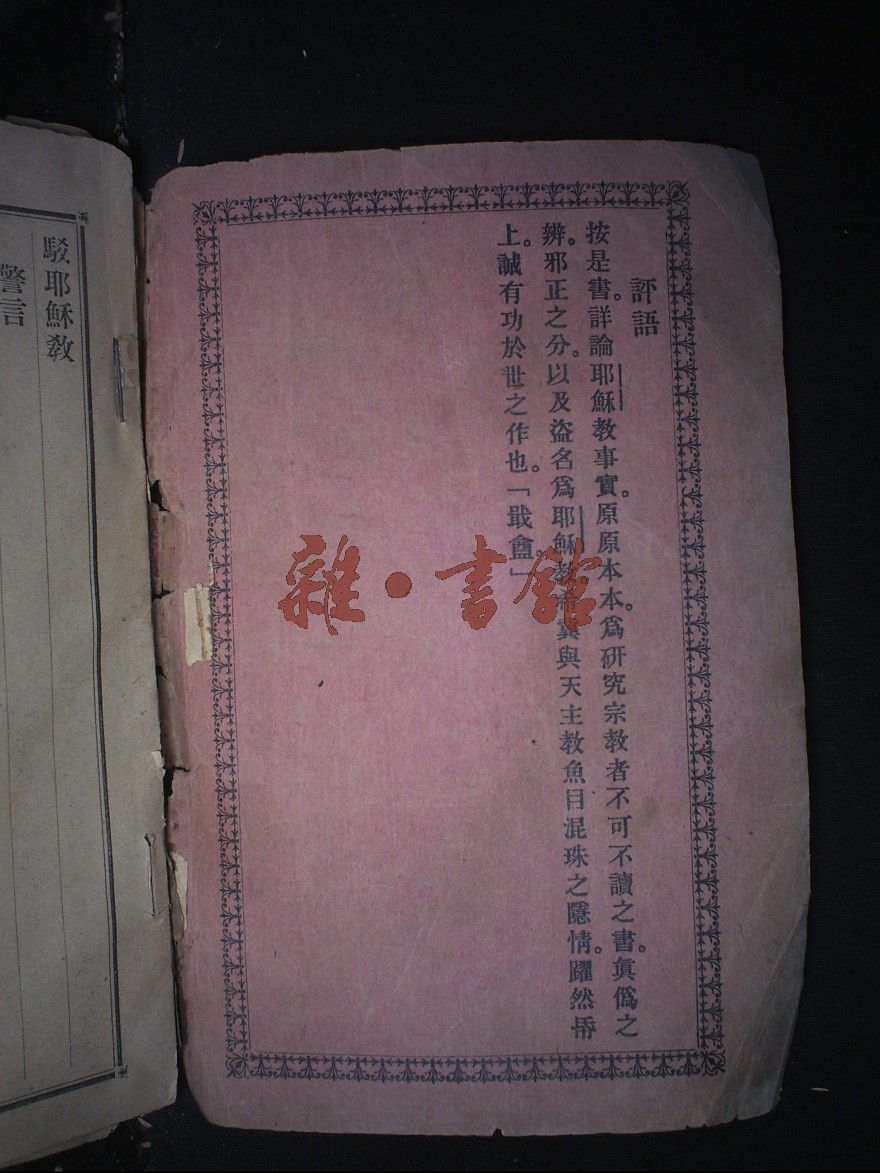 評語
按是書。詳論耶穌教事實。原原本本。爲研究宗教者不可不讀之書。眞僞之
辨。邪正之分。以及盜名爲耶穌教冀與天主教魚目混珠之隱情。躍然帋
上。誠有功於世之作也。「戢盦」
駁耶穌教
警言
雜·書館